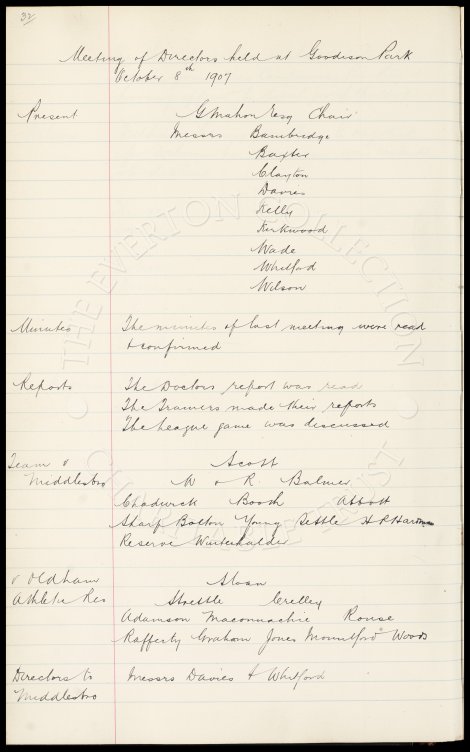 32
Meeting of Directors held at Goodison Park
October 8th 1907
Present G Mahon Esq Chair
Messrs Bainbridge
Baxter
Clayton
Davies
Kelly
Kirkwood
Wade
Whitford
Wilson
Minutes The minutes of last meeting were read
+ confirmed
Reports The Doctors report was read
The Trainers made their reports
The League game was discussed
Team v Scott
Middlesbro W & R. Balmer
Chadwick Booth Abbott
Sharp Bolton Young Settle H P Hardman
Reserve Winterhalder
v Oldham Sloan
Athletic Res Strettle Crelley
Adamson Maconnachie Rouse
Rafferty Graham Jones Mountford Woods
Directors to Messrs Davies + Whitford
Middlesbro
THE EVERTON COLLECTION
CHARITABLE TRUST